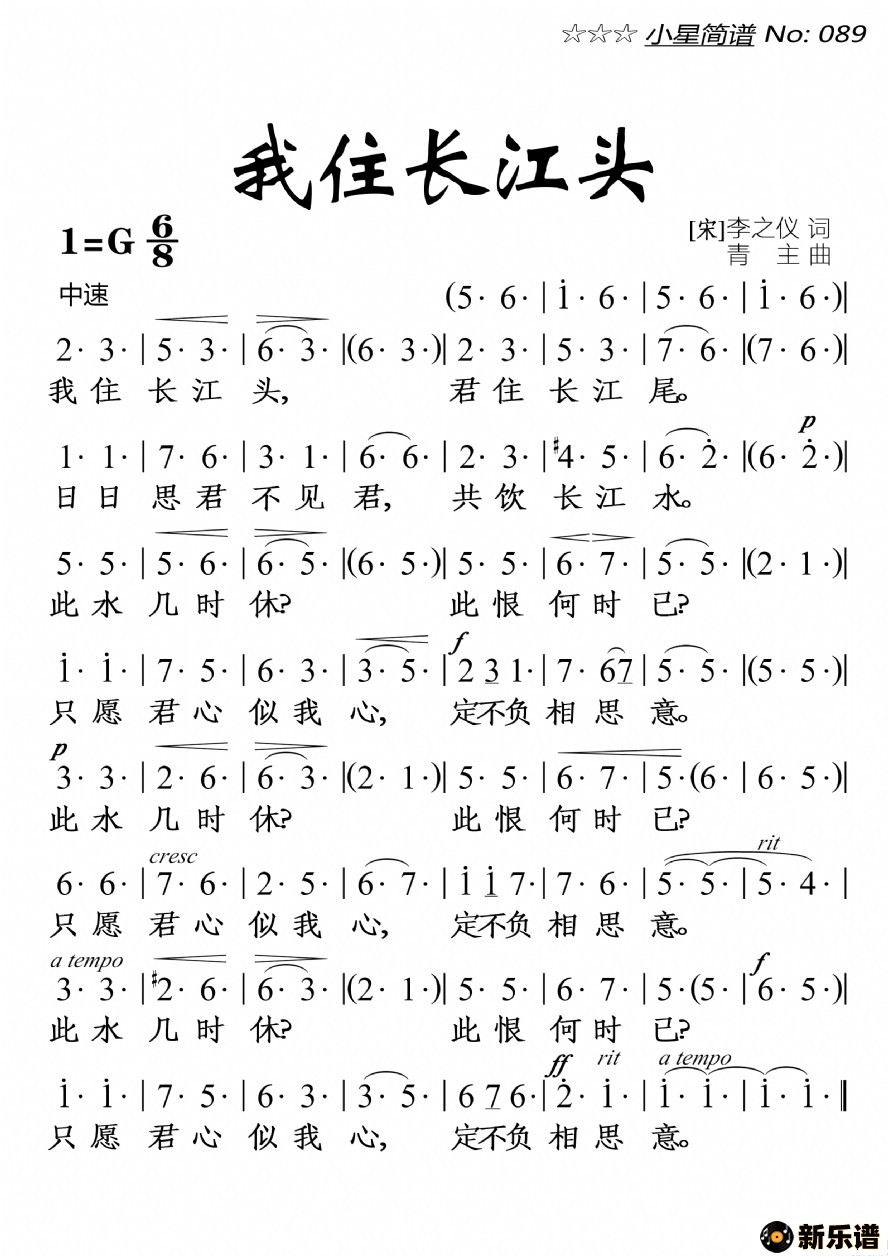 ☆☆☆ 小星简谱 No: 089
我住长江头
1=G 6/8
[宋]李之仪 词
青 主 曲
中速 (5· 6· | i· 6· | 5· 6· | i· 6·)|
2· 3· | 5· 3· | 6· 3· |(6· 3·)| 2· 3· | 5· 3· | 7· 6· |(7· 6·)|
我 住 长 江 头, 君 住 长 江 尾。
p
1· 1· | 7· 6· | 3· 1· | 6· 6· | 2· 3· | #4· 5· | 6· 2̇· |(6· 2̇·)|
日 日 思 君 不 见 君, 共 饮 长 江 水。
5· 5· | 5· 6· | 6· 5· |(6· 5·)| 5· 5· | 6· 7· | 5· 5· |(2· 1·)|
此 水 几 时 休? 此 恨 何 时 已?
f
i· i· | 7· 5· | 6· 3· | 3· 5· | 2 3 1· | 7· 67 | 5· 5· |(5· 5·)|
只 愿 君 心 似 我 心, 定不负 相 思 意。
p
3· 3· | 2· 6· | 6· 3· |(2· 1·)| 5· 5· | 6· 7· | 5·(6· | 6· 5·)|
此 水 几 时 休? 此 恨 何 时 已?
cresc rit
6· 6· | 7· 6· | 2· 5· | 6· 7· | i i 7· | 7· 6· | 5· 5· | 5· 4· |
只 愿 君 心 似 我 心, 定不负 相 思 意。
a tempo f
3· 3· | #2· 6· | 6· 3· |(2· 1·)| 5· 5· | 6· 7· | 5·(5· | 6· 5·)|
此 水 几 时 休? 此 恨 何 时 已?
ff rit a tempo
i· i· | 7· 5· | 6· 3· | 3· 5· | 6 7 6· | 2̇· i· | i· i· | i· i· ‖
只 愿 君 心 似 我 心, 定不负 相 思 意。
新乐谱